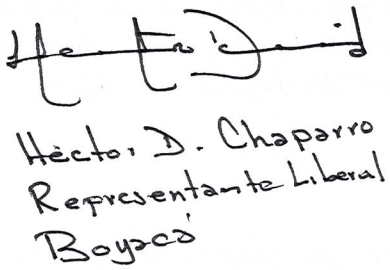 Héctor David
Héctor D. Chaparro
Representante Liberal
Boyacá